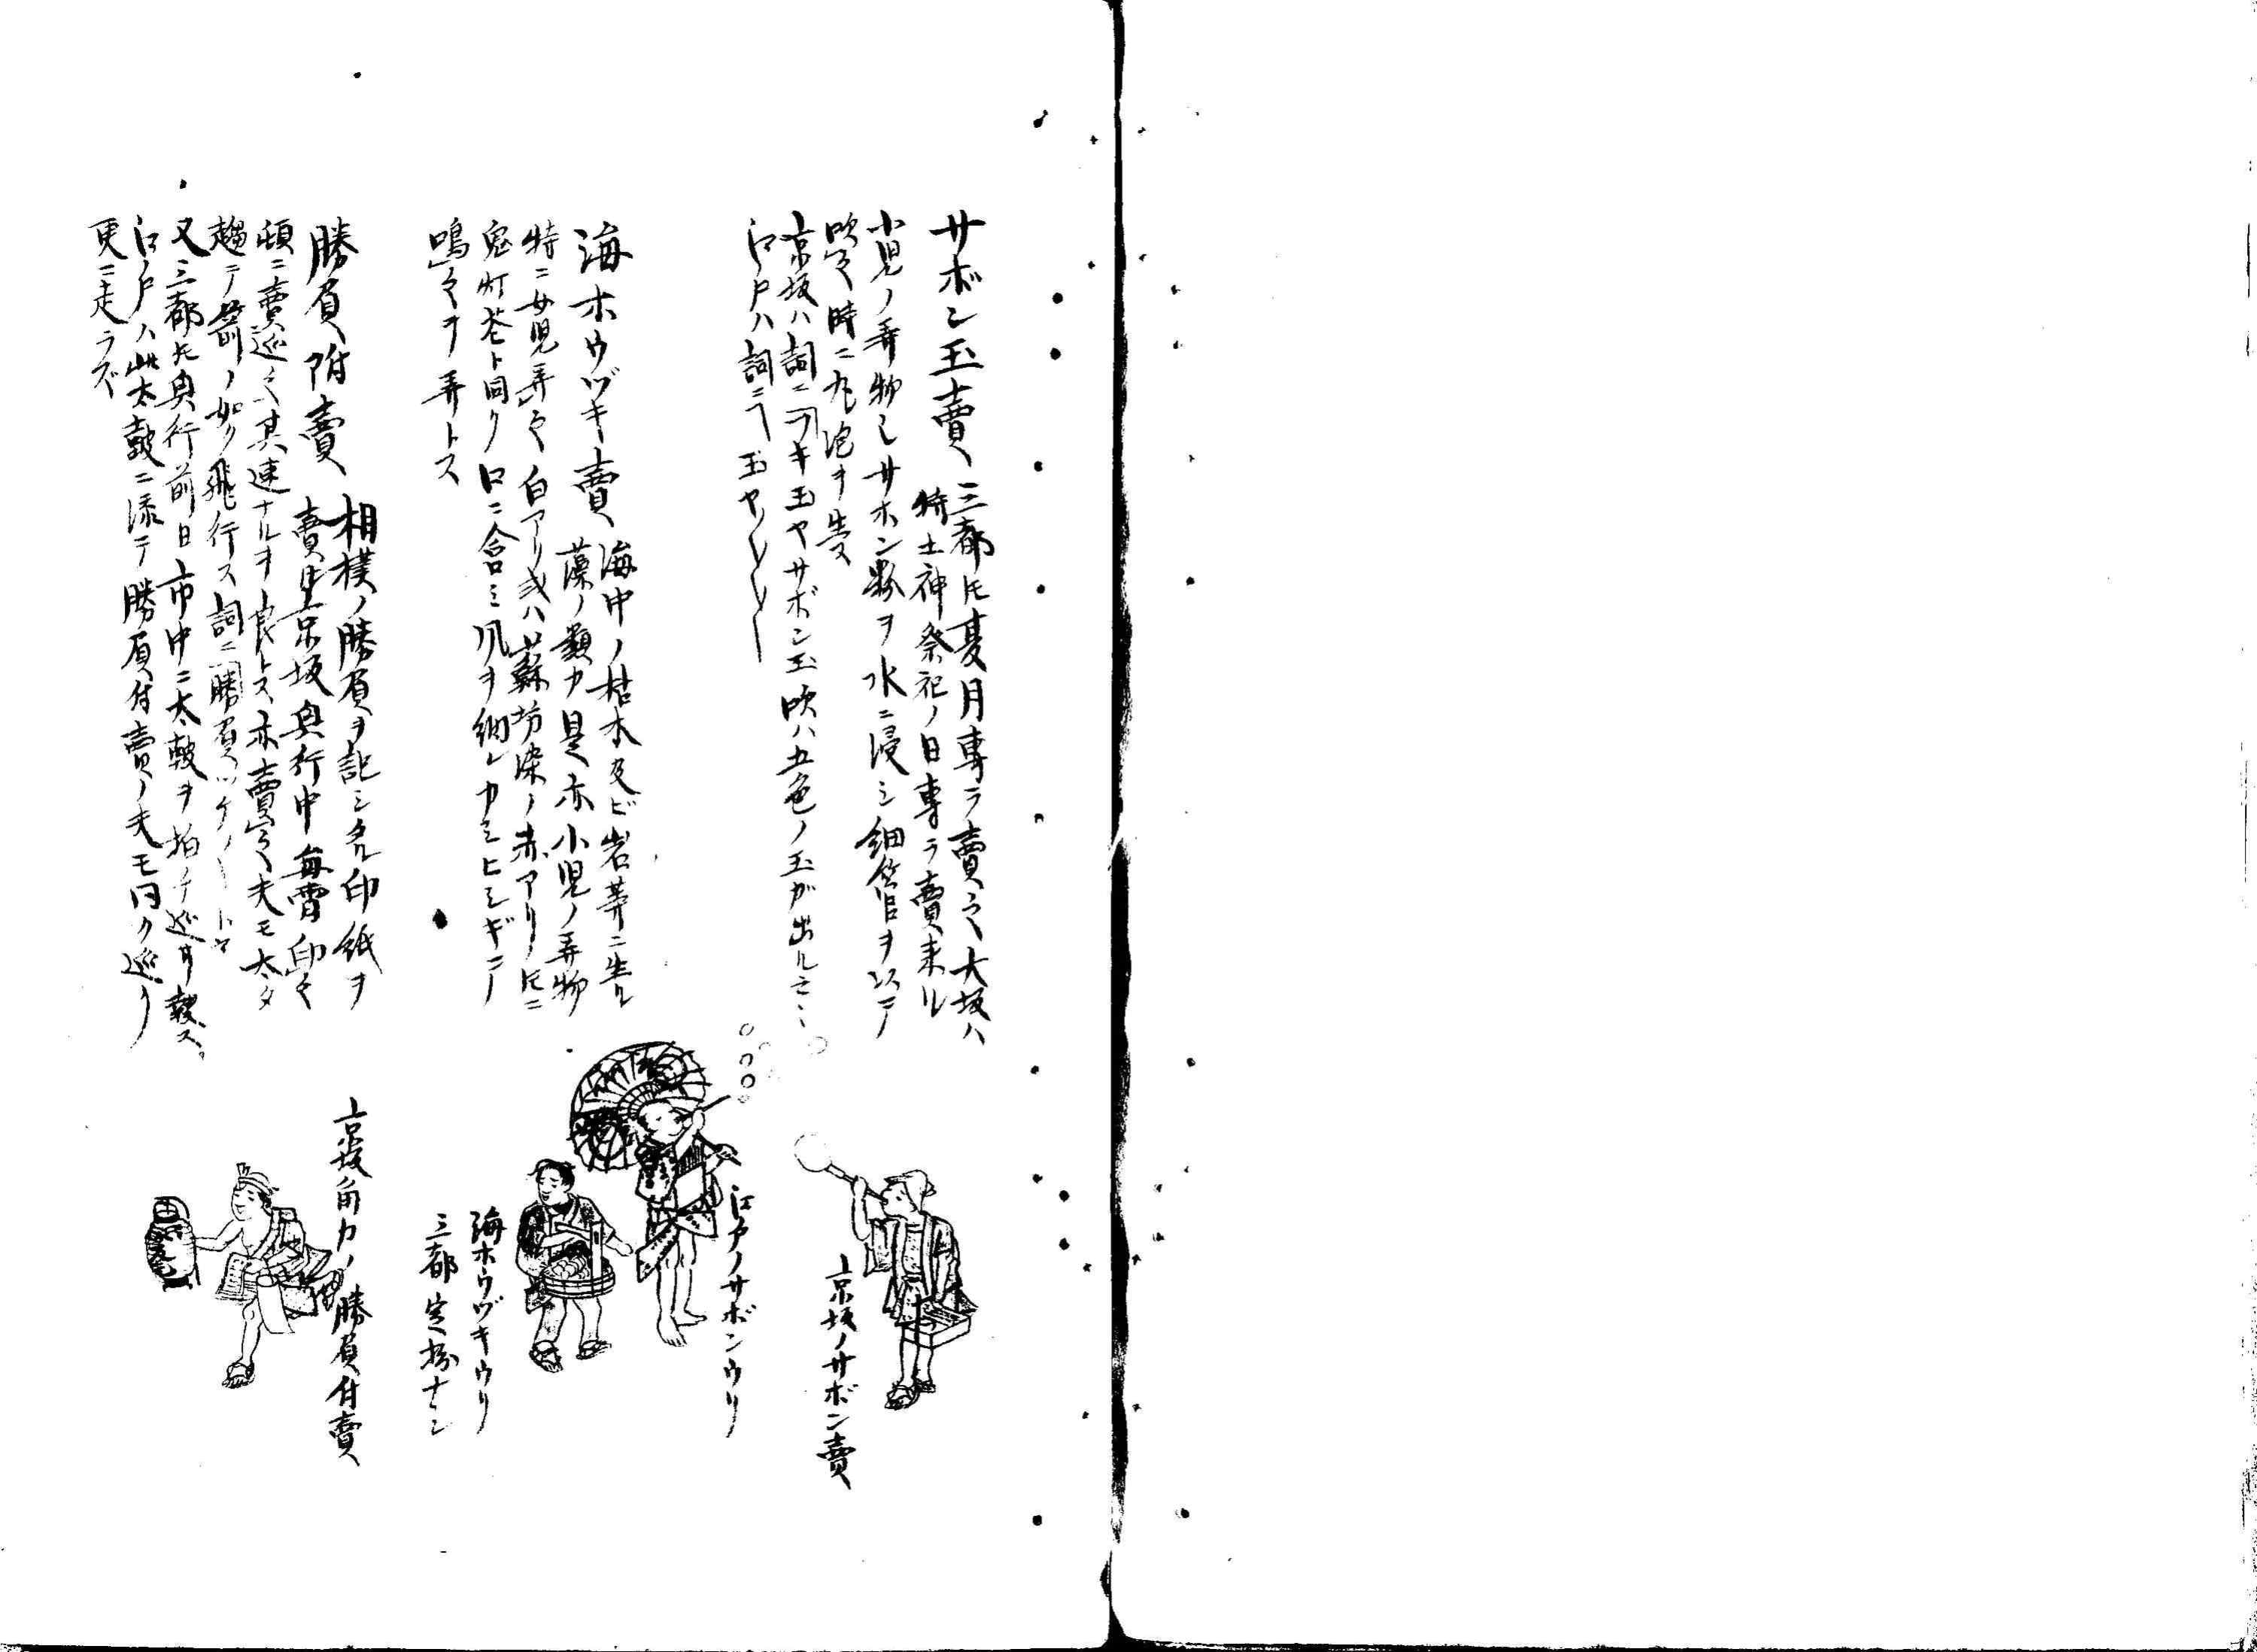 サボン玉賣 三都ℼ夏月専ラ賣之大坂ハ
特土神祭祀ノ日専ラ賣来ル
小児ノ弄物也サホン粉ヲ水ニ浸シ細管ヲ以テ
吹之時ニ丸泡ヲ生ス
京坂ハ詞ニフキ玉ヤサボン玉吹ハ五色ノ玉が出ル云々
江戸ハ詞ニ玉ヤ〱〱〱
海ホウヅキ賣 海中ノ枯木及ビ岩等ニ生ル
藻ノ類カ是亦小児ノ弄物
特ニ女児弄之白アリ或ハ蘇坊染ノ赤アリ𪜈ニ
鬼灯葢ト同ク口ニ含ミ風ヲ納レカミヒシギテ
鳴之ヲ弄トス
勝負附賣 相撲ノ勝負ヲ記シタル印紙ヲ
賣也京坂興行中毎宵印之
頓ニ賣巡ル其速ナルヲ良トス亦賣之夫モ太タ
趨テ箭ノ如ク飛行ス詞ニ勝負ツケ〱ト云
又三都𪜈興行前日市中ニ太皷ヲ拍チ巡リ報ズ
江戸ハ此太皷ニ添テ勝負付賣ノ夫モ同ク巡ク
更ニ走ラズ
京坂ノサボン賣
江戸ノサボンウリ
海ホウヅキウリ
三都定扮ナシ
京坂角力ノ勝負付賣